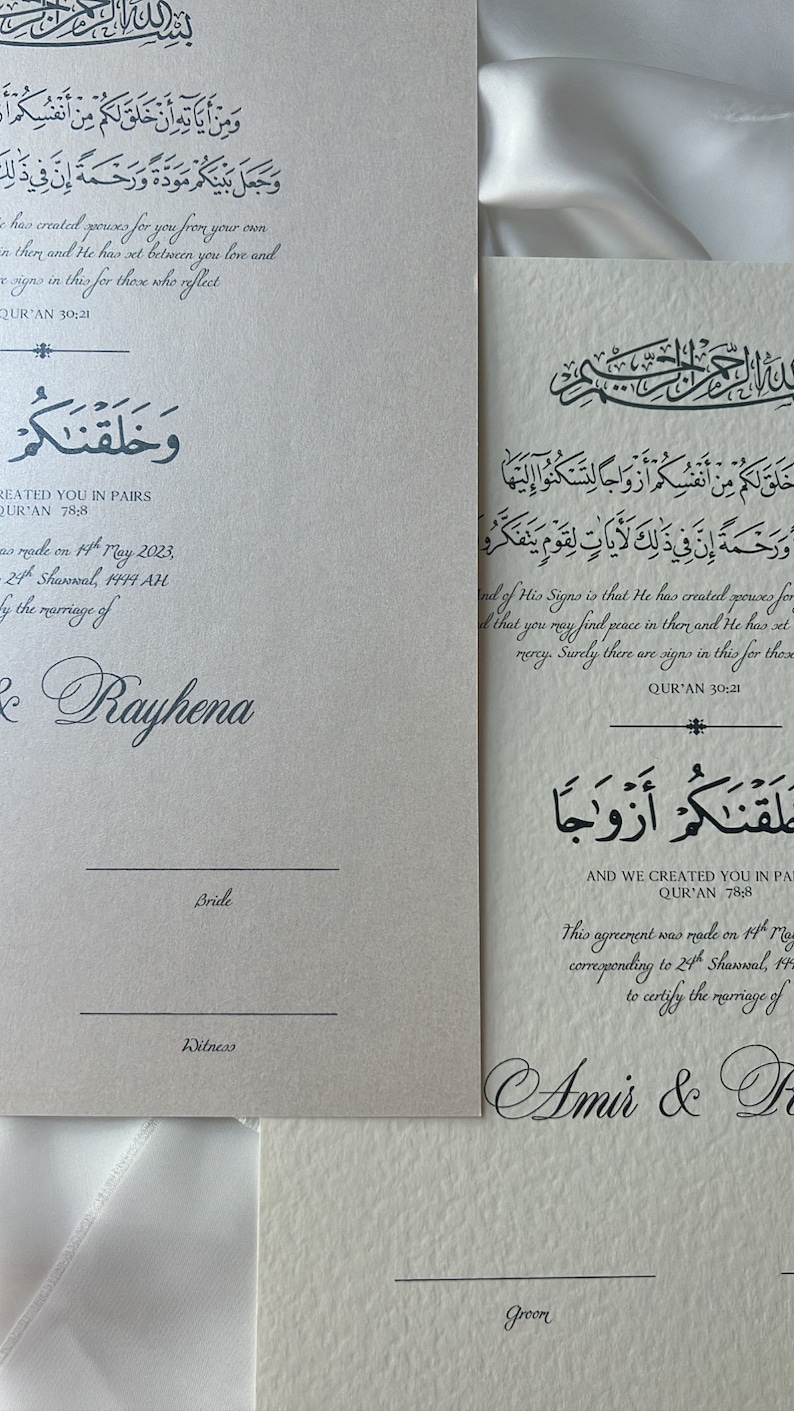 بسم الله الرحمن الرحيم
وَمِنْ أَيَاتِهِ أَنْ خَلَقَ لَكُمْ مِنْ أَنْفُسِكُمْ
وَجَعَلَ بَيْنَكُمْ مَوَدَّةً وَرَحْمَةً إِنَّ فِي ذَلِكَ
has created spouses for you from your own
in them and He has set between you love and
signs in this for those who reflect
QUR'AN 30:21
وَخَلَقْنَاكُمْ
CREATED YOU IN PAIRS
QUR'AN 78:8
was made on 14th May 2023,
24th Shawwal, 1444 AH
the marriage of
& Rayhena
Bride
Witness
الله الرحمن الرحيم
خَلَقَ لَكُمْ مِنْ أَنْفُسِكُمْ أَزْوَاجًا لِتَسْكُنُوا إِلَيْهَا
وَرَحْمَةً إِنَّ فِي ذَلِكَ لَأَيَاتٍ لِقَوْمٍ يَتَفَكَّرُو
And of His Signs is that He has created spouses for
that you may find peace in them and He has set
mercy. Surely there are signs in this for those
QUR'AN 30:21
خَلَقْنَاكُمْ أَزْوَاجًا
AND WE CREATED YOU IN PAI
QUR'AN 78:8
This agreement was made on 14th May
corresponding to 24th Shawwal, 144
to certify the marriage of
Amir & R
Groom